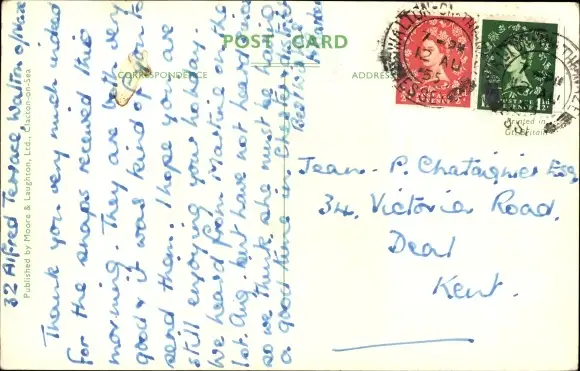 POST CARD
CORRESPONDENCE
ADDRESS
32 Alfred Terrace Walton o/Naze
Thank you very much indeed
for the snaps received this
morning. They are both very
good & it was kind of you to
send them. I hope you are
still enjoying your holiday.
We heard from Martine on the
1st. Aug. but have not heard since
so we think she must be having
a good time in Chester & district
Best wishes
Jean-P. Chataignier Esq,
34, Victoria Road,
Deal
Kent.
Printed in
Gt. Britain
Published by Moore & Laughton, Ltd., Clacton-on-Sea
WALTON-ON-THE-NAZE
12 AU
55
ESSEX